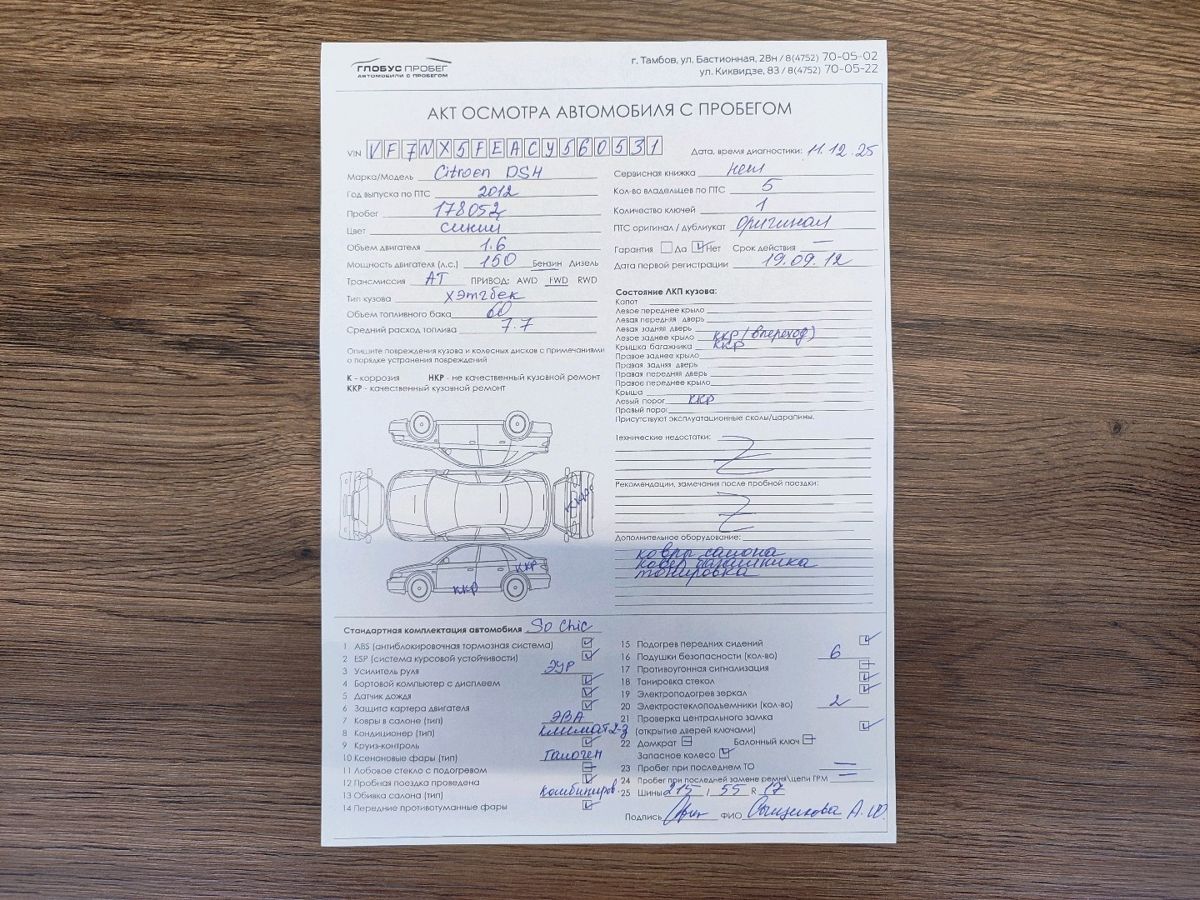 ГЛОБУС ПРОБЕГ
АВТОМОБИЛИ С ПРОБЕГОМ
г. Тамбов, ул. Бастионная, 28н / 8(4752) 70-05-02
ул. Киквидзе, 83 / 8(4752) 70-05-22
АКТ ОСМОТРА АВТОМОБИЛЯ С ПРОБЕГОМ
VIN VF7NX5FEACY560531
Дата, время диагностики: 11.12.25
Марка/Модель Citroen DS4
Год выпуска по ПТС 2012
Пробег 178052
Цвет синий
Объем двигателя 1.6
Мощность двигателя (л.с.) 150 Бензин Дизель
Трансмиссия АТ ПРИВОД: AWD FWD RWD
Тип кузова хэтчбек
Объем топливного бака 60
Средний расход топлива 7.7
Сервисная книжка нет
Кол-во владельцев по ПТС 5
Количество ключей 1
ПТС оригинал / дубликат оригинал
Гарантия Да Нет Срок действия —
Дата первой регистрации 19.09.12
Опишите повреждения кузова и колесных дисков с примечаниями
о порядке устранения повреждений
К - коррозия НКР - не качественный кузовной ремонт
ККР - качественный кузовной ремонт
ККР
ККР
Состояние ЛКП кузова:
Капот
Левое переднее крыло
Левая передняя дверь
Левая задняя дверь
Левое заднее крыло ККР (впереход)
Крышка багажника ККР
Правое заднее крыло
Правая задняя дверь
Правая передняя дверь
Правое переднее крыло
Крыша
Левый порог ККР
Правый порог
Присутствуют эксплуатационные сколы/царапины.
Технические недостатки:
Рекомендации, замечания после пробной поездки:
Дополнительное оборудование:
ковры салона
ковер багажника
тонировка
Стандартная комплектация автомобиля So Chic
1 ABS (антиблокировочная тормозная система)
2 ESP (система курсовой устойчивости)
3 Усилитель руля ЭУР
4 Бортовой компьютер с дисплеем
5 Датчик дождя
6 Защита картера двигателя
7 Ковры в салоне (тип) ЭВА
8 Кондиционер (тип) климат 2-з
9 Круиз-контроль
10 Ксеноновые фары (тип) Галоген
11 Лобовое стекло с подогревом
12 Пробная поездка проведена
13 Обивка салона (тип) комбиниров.
14 Передние противотуманные фары
15 Подогрев передних сидений
16 Подушки безопасности (кол-во) 6
17 Противоугонная сигнализация
18 Танировка стекол
19 Электроподогрев зеркал
20 Электростеклоподъемники (кол-во) 2
21 Проверка центрального замка
(открытие дверей ключами)
22 Домкрат Балонный ключ
Запасное колесо
23 Пробег при последнем ТО —
24 Пробег при последней замене ремня/цепи ГРМ —
25 Шины 215 / 55 R 17
Подпись ФИО А.Ю.